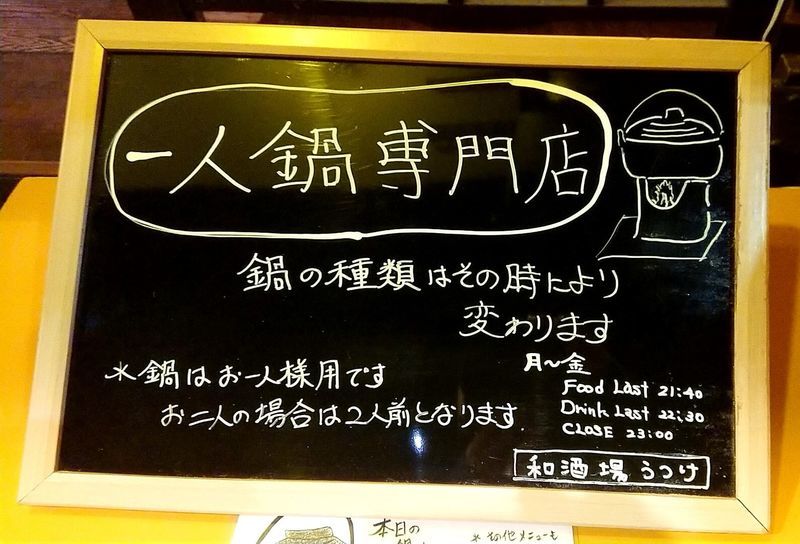 一人鍋専門店
鍋の種類はその時により
変わります
月〜金
Food Last 21:40
Drink Last 22:30
CLOSE 23:00
＊鍋はお一人様用です
お二人の場合は2人前となります.
和酒場うつけ
本日の
＊その他メニューも